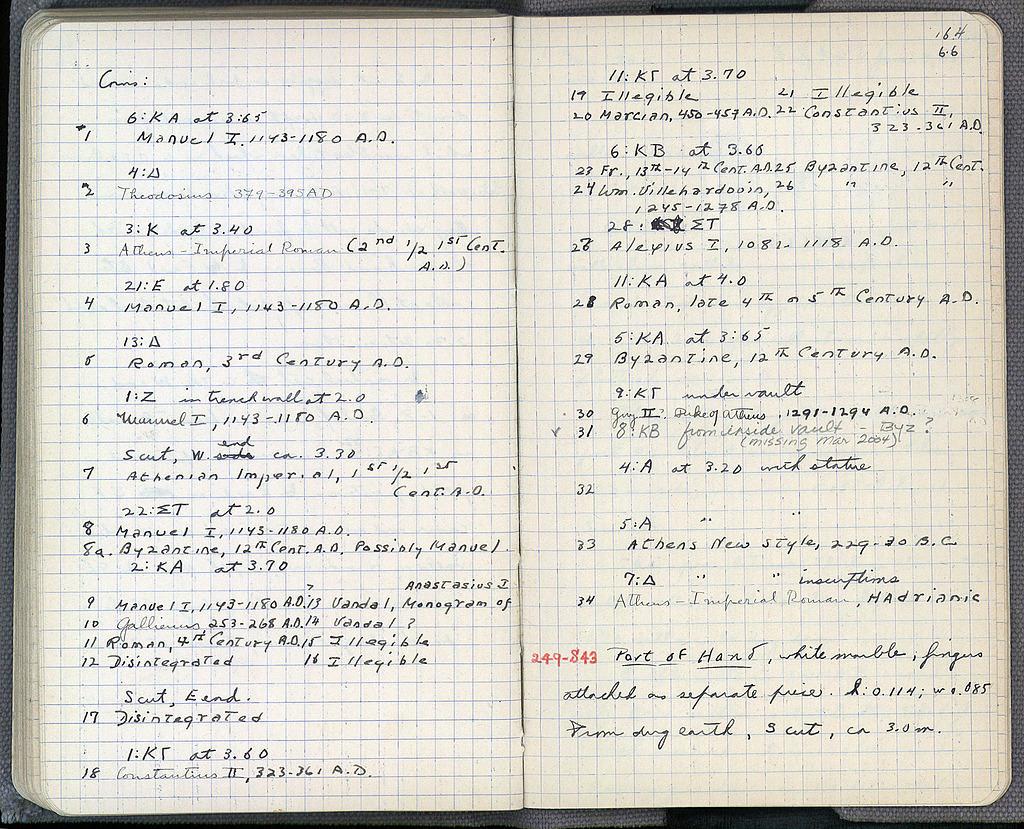 Coins:
6:KA at 3.65
1 Manuel I, 1143-1180 A.D.
4:Δ
2 Theodosius 379-395 AD
3:K at 3.40
3 Athens-Imperial Roman (2nd 1/2 1st Cent.
A.D.)
21:E at 1.80
4 Manuel I, 1143-1180 A.D.
13:Δ
5 Roman, 3rd Century A.D.
1:Z in trench wall at 2.0
6 Manuel I, 1143-1180 A.D
Scut, W. end ca. 3.30
7 Athenian Imperial, 1st 1/2 1st
Cent. A.D.
22:ΣT at 2.0
8 Manuel I, 1143-1180 A.D.
8a. Byzantine, 12th Cent. A.D. Possibly Manuel.
2:KA at 3.70
? Anastasius I
9 Manuel I, 1143-1180 A.D. 13 Vandal, Monogram of
10 Gallienus 253-268 A.D. 14 Vandal ?
11 Roman, 4th Century A.D. 15 Illegible
12 Disintegrated 16 Illegible
Scut, E end.
17 Disintegrated
1:KΓ at 3.60
18 Constantius II, 323-361 A.D.
164
6.6
11:KΓ at 3.70
19 Illegible 21 Illegible
20 Marcian, 450-457 A.D. 22 Constantius II,
323-361 A.D.
6:KB at 3.60
23 Fr., 13th-14th Cent. A.D. 25 Byzantine, 12th Cent.
24 Wm. Villehardouin, 26 " "
1245-1278 A.D.
28: ΣT
Alexius I, 1081-1118 A.D.
11:KA at 4.0
28 Roman, late 4th or 5th Century A.D.
5:KA at 3:65
29 Byzantine, 12th Century A.D.
9:KΓ under vault
30 Guy II? Duke of Athens, 1291-1294 A.D.
✓ 31 8:KB from inside vault - Byz?
(missing Mar 2004)
4:A at 3.20 with statue
32
5:A " "
33 Athens New Style, 229-30 B.C
7:Δ " " inscriptions
34 Athens-Imperial Roman, HAdrianic
249-843 Part of Hand, white marble, fingers
attached as separate piece. h: 0.114; w 0.085
From dug earth, S cut, ca 3.0 m.